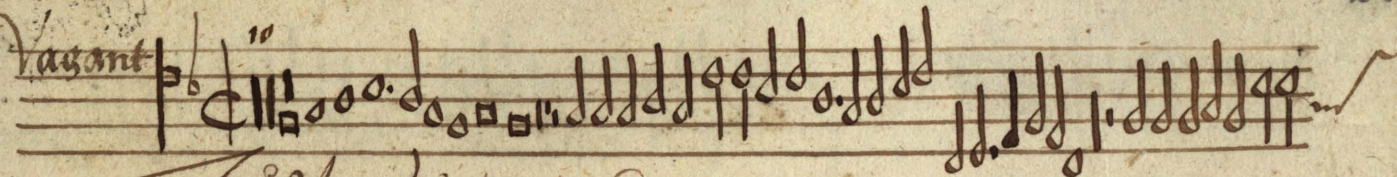 Vagant
10